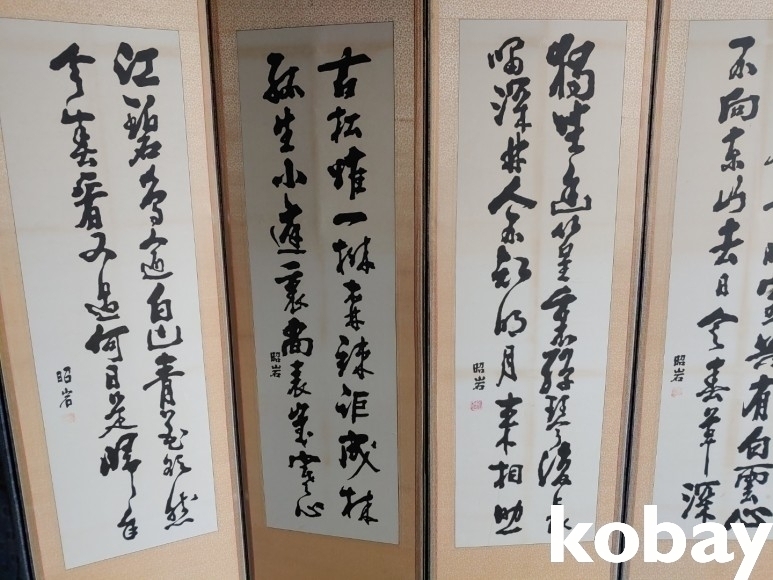 共有白雲心
不向東山去日令春草深
昭岩
獨坐幽篁裏彈琴復長
嘯深林人不知明月来相照
昭岩
古松唯一樹森竦詎成林
孤生小庭裏尚表歲寒心
昭岩
江碧鳥逾白山青花欲然
今春看又過何日是歸年
昭岩
kobay